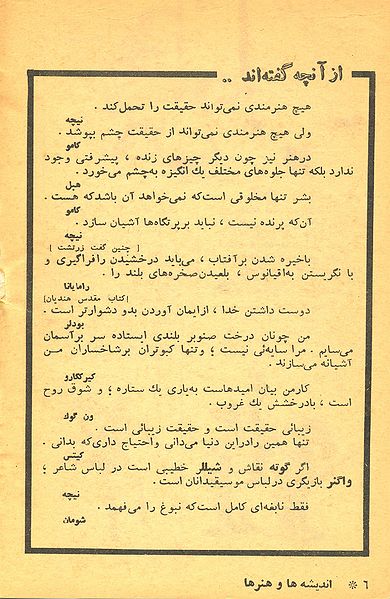 از آنچه گفته‌اند ..
هیچ هنرمندی نمی‌تواند حقیقت را تحمل‌کند .
نیچه
ولی هیچ هنرمندی نمی‌تواند از حقیقت چشم بپوشد .
کامو
درهنر نیز چون دیگر چیزهای زنده ، پیشرفتی وجود
ندارد بلکه تنها جلوه‌های مختلف یك انگیزه به‌چشم می‌خورد .
هبل
بشر تنها مخلوقی است‌که نمی‌خواهد آن باشدکه هست .
کامو
آن‌که پرنده نیست ، نباید بر پرتگاه‌ها آشیان سازد .
نیچه
[ چنین گفت زرتشت ]
باخیره شدن برآفتاب ، می‌باید درخشیدن را فراگیری و
با نگریستن به‌اقیانوس ، بلعیدن‌صخره‌های بلند را .
رامایانا
[کتاب مقدس هندیان]
دوست داشتن خدا ، ازایمان آوردن بدو دشوارتر است .
بودلر
من چونان درخت صنوبر بلندی ایستاده سر برآسمان
می‌سایم . مرا سایه‌ئی نیست ؛ وتنها کبوتران برشاخساران من
آشیانه می‌سازند .
کیرکگارو
کارمن بیان امیدهاست به‌یاری یك ستاره ؛ و شوق روح
است ، بادرخشش یك غروب .
ون گوك
زیبائی حقیقت است و حقیقت زیبائی است .
تنها همین رادراین دنیا می‌دانی واحتیاج داری‌که بدانی .
کیتس
اگر گوته نقاش و شیللر خطیبی است در لباس شاعر ؛
واگنر بازیگری درلباس موسیقیدانان است .
نیچه
فقط نابغه‌ای کامل است‌که نبوغ را می‌فهمد .
شومان
۶ * اندیشه ها و هنرها